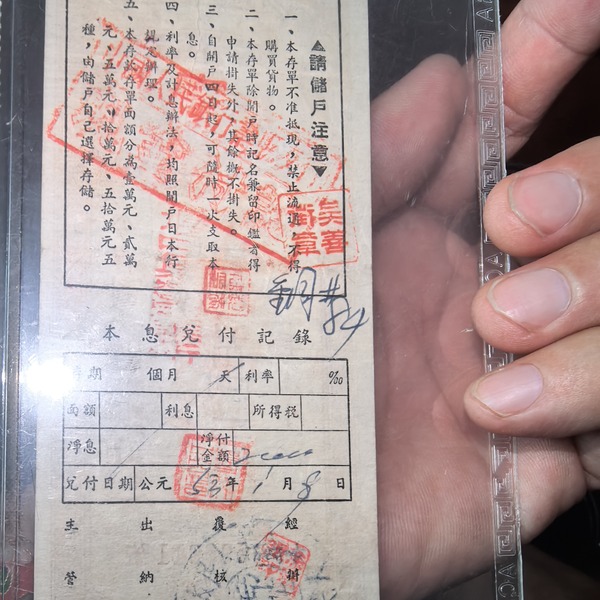 ▲請儲戶注意▼
一、本存單不准抵現，禁止流通，不得
購買貨物。
二、本存單除開戶時記名兼留印鑑者得
申請掛失外，其餘概不掛失。
三、自開戶四日起，可隨時一次支取本
息。
四、利率及計息辦法，均照開戶日本行
規定辦理。
五、本存款存單面額分為壹萬元、貳萬
元、五萬元、拾萬元、五拾萬元五
種，由儲戶自己選擇存儲。
本息兌付記錄
時期 個月 天 利率 ‰
面額 利息 所得稅
淨息 淨付金額 20000
兌付日期 公元 53 年 1 月 8 日
主管 出納 覆核 經辦